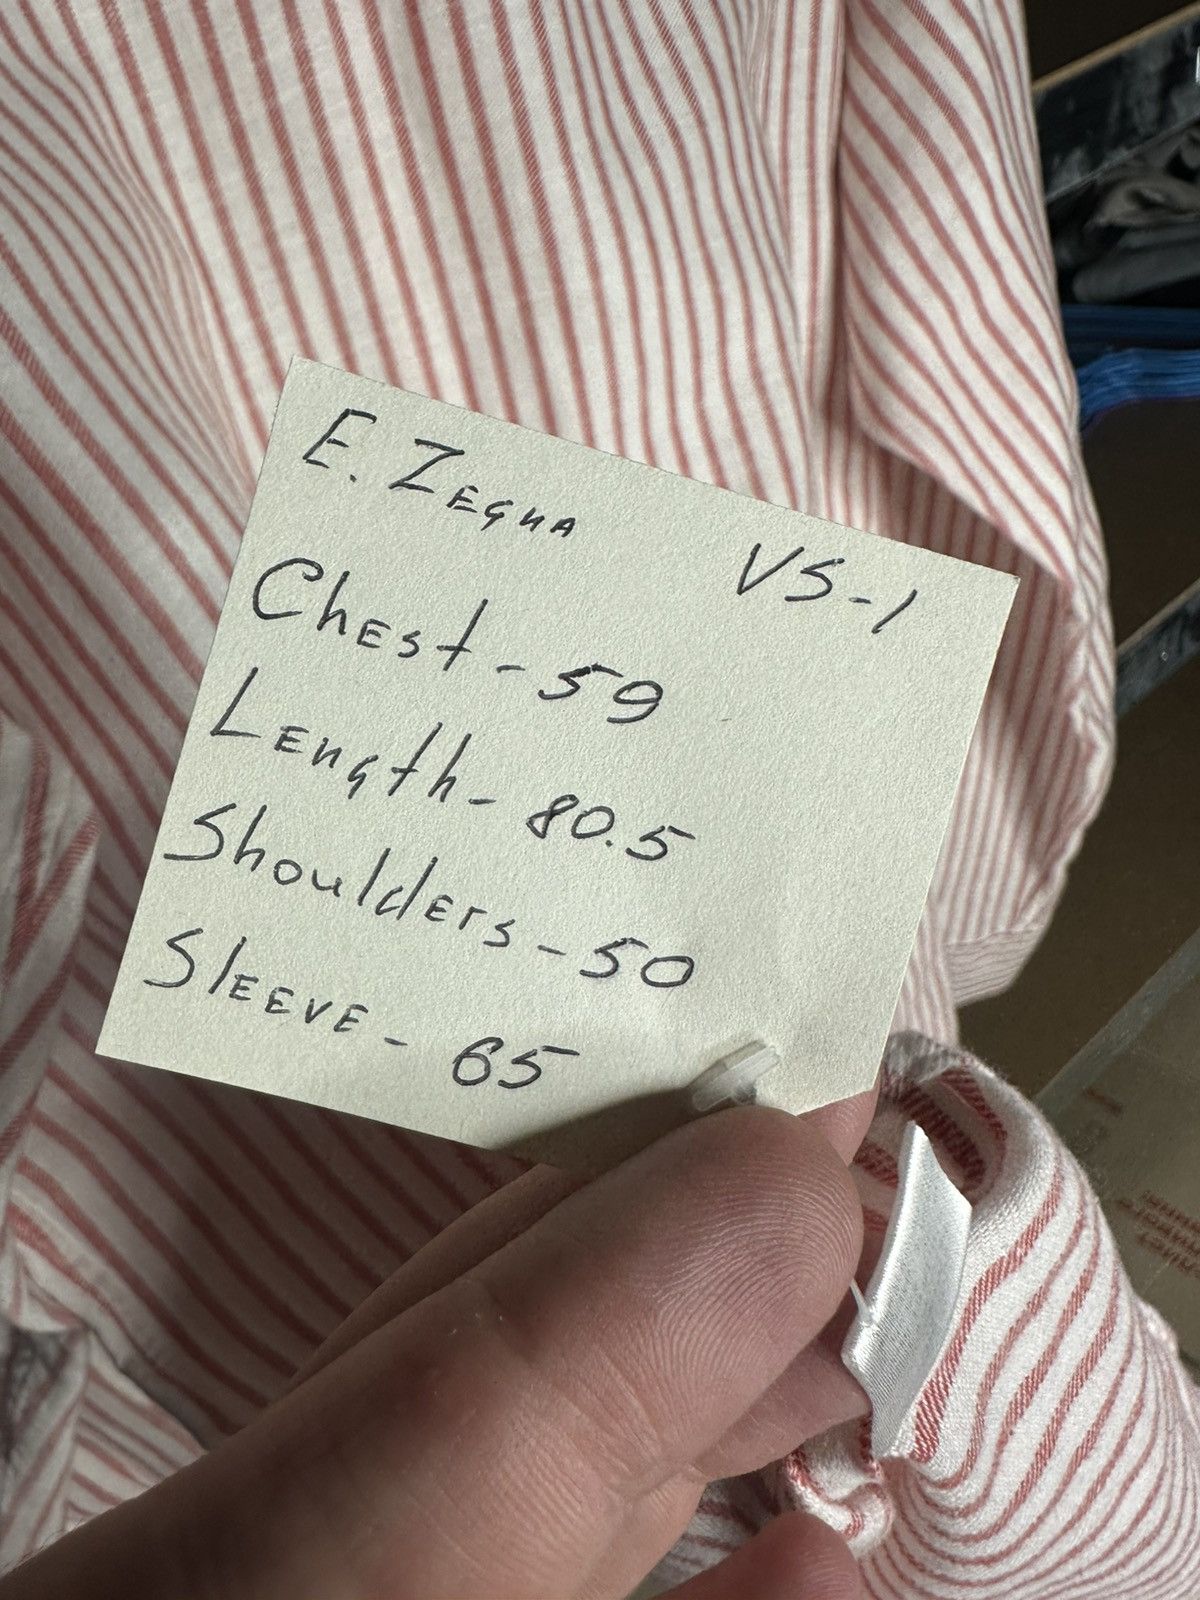 E. Zegna
VS-1
Chest - 59
Length - 80.5
Shoulders - 50
Sleeve - 65